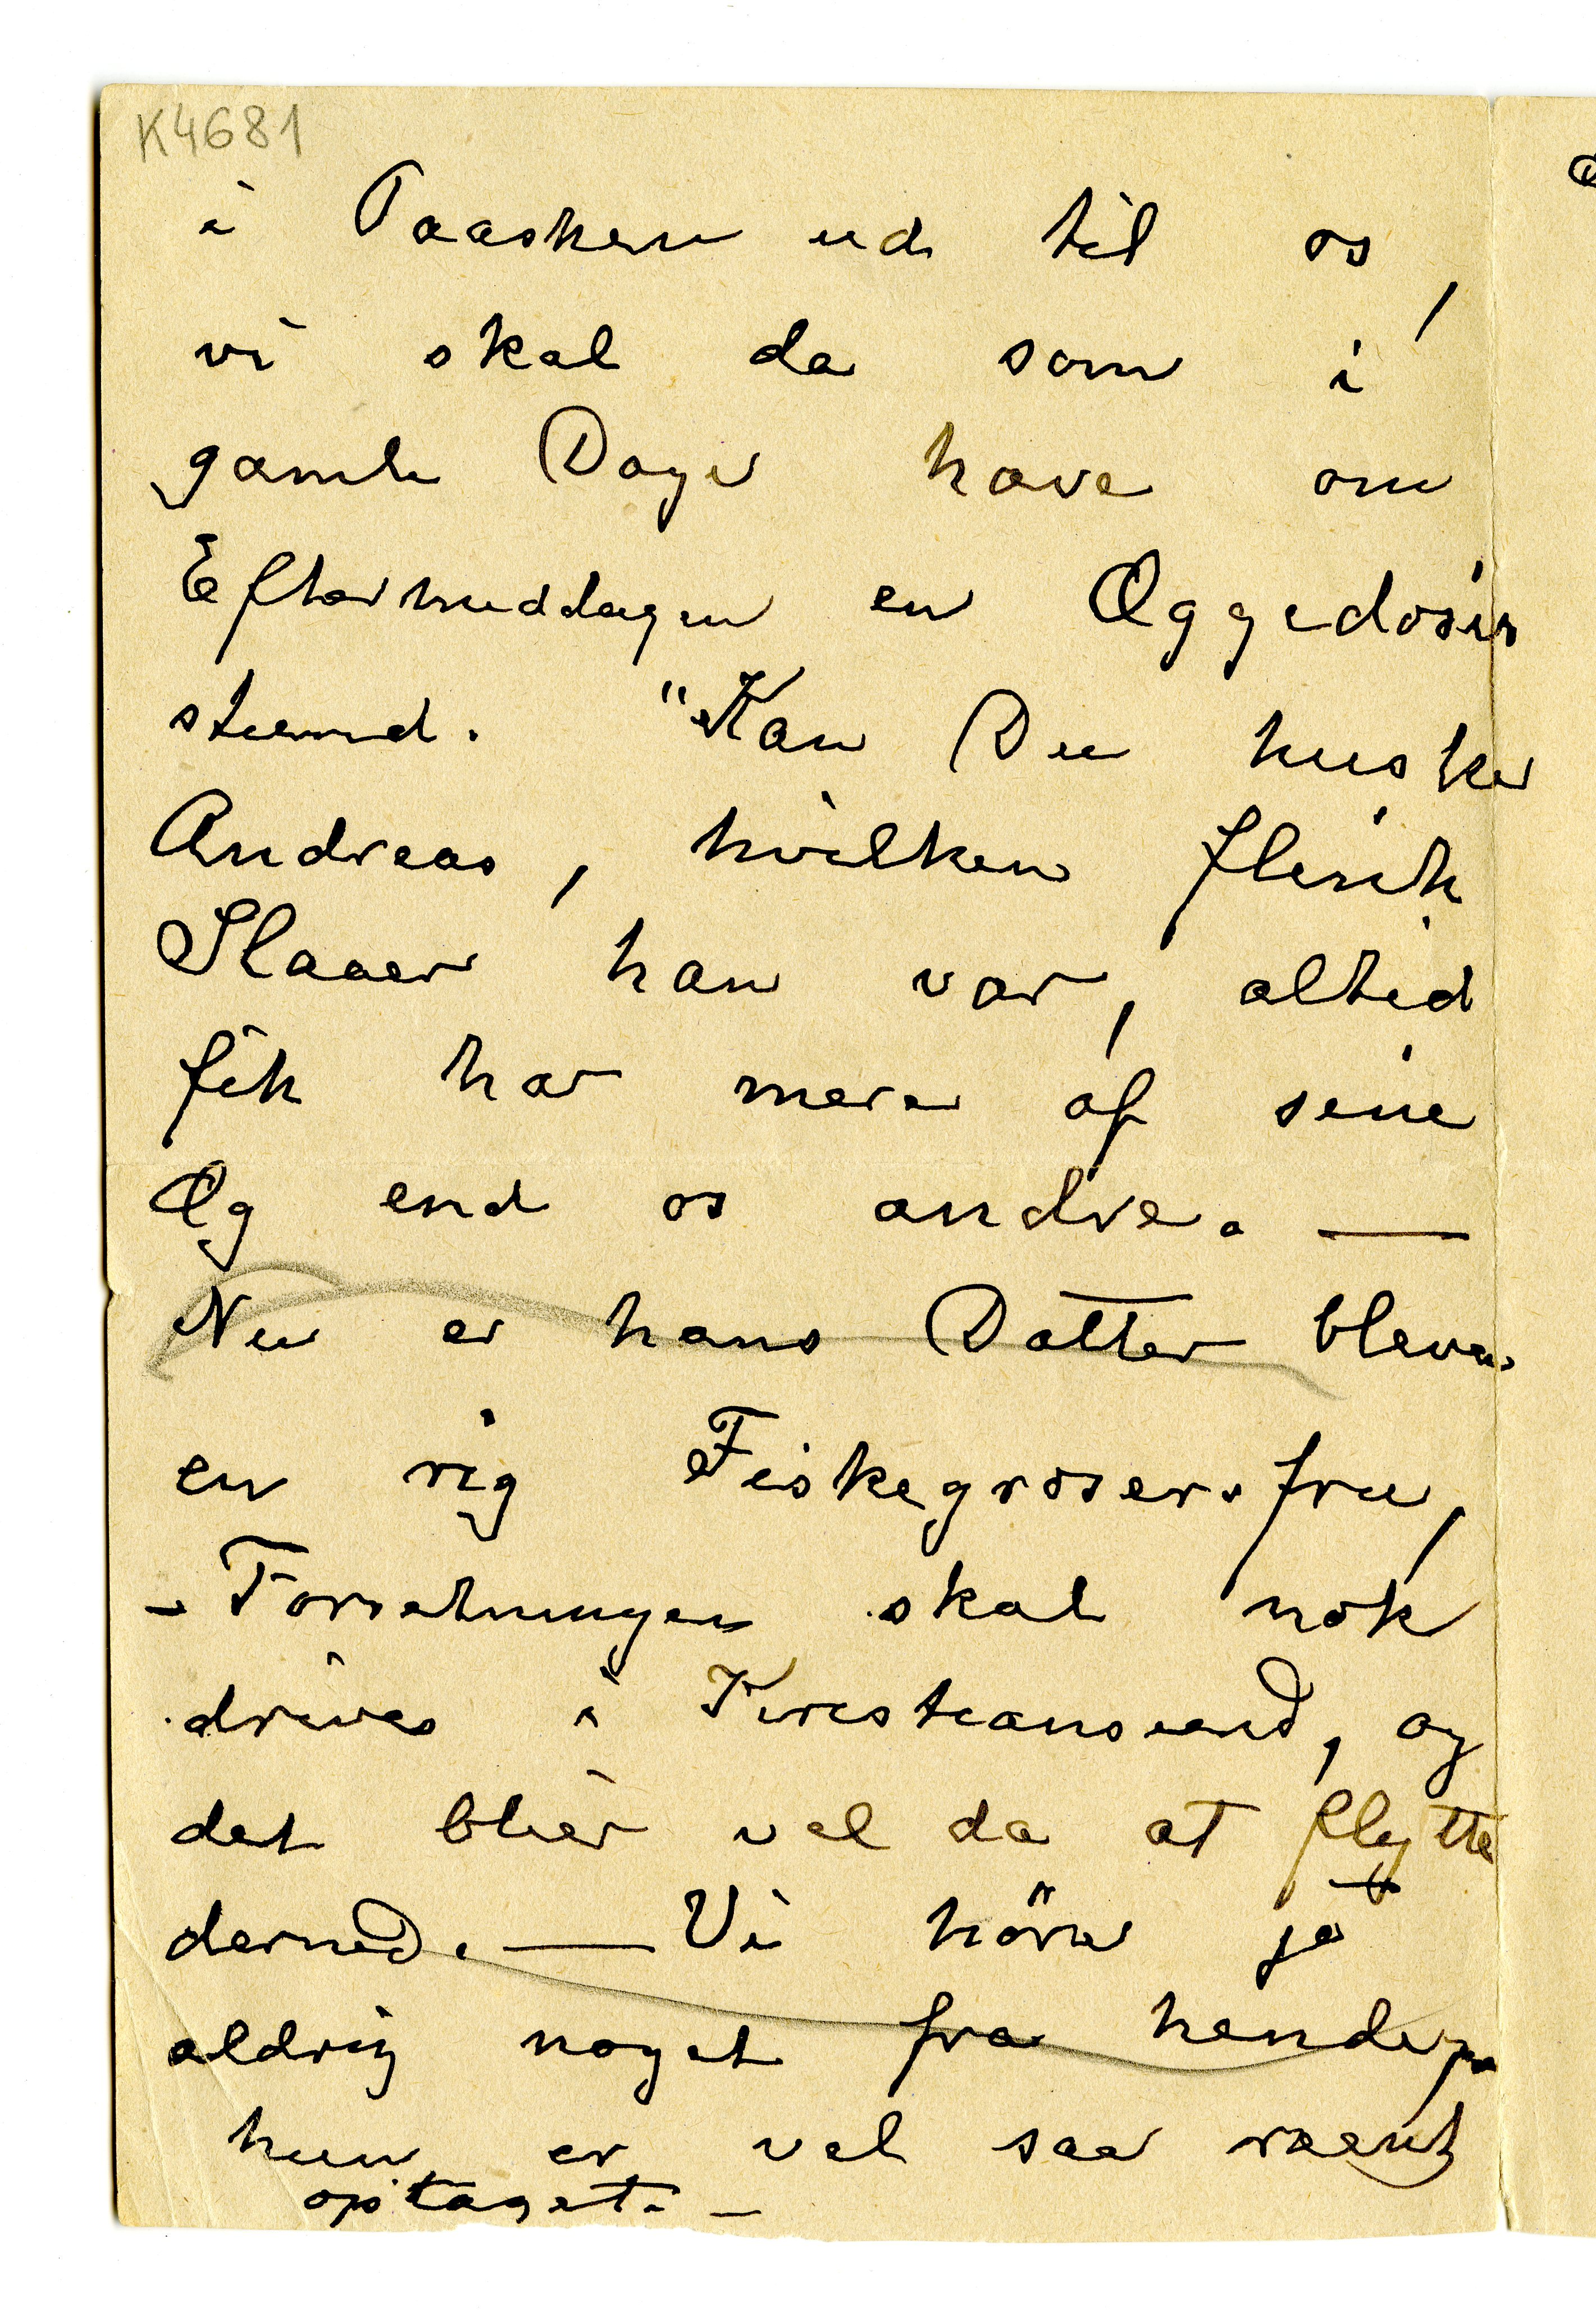 K4681
i Paasken ud til os,
vi skal da som i
gamle Dage have en
Eftermiddagen en Æggedosis
stund. "Kan Du huske
Andreas, hvilken flink
Slaaer han var, altid
fik han mere af sine
Æg end os andre. —
Nu er hans Datter bleven
en rig Fiskegrosersfru,
- Forretningen skal nok
drives i Kristiansund, og
det bliver vel da at flytte
derned. — Vi hører jo
aldrig noget fra hende,
hun er vel saa
optaget. —